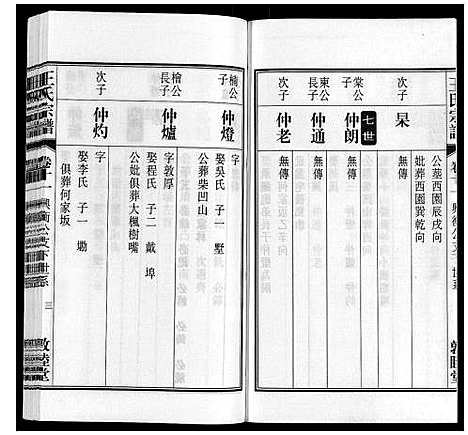 王氏宗譜
卷十一
公墓西園辰戌向
妣葬西園巽乾向
次子
杲
無傳
七世
棠公子
仲朗
無傳
東公長子
仲通
無傳
次子
仲老
無傳
楠公子
仲燈
字
娶吳氏 子一 墅
公葬柴凹山
檜公長子
仲爐
字敦厚
娶程氏 子二 戴 埠
公妣俱葬大楓樹嘴
次子
仲灼
字
娶李氏 子一 勱
俱葬何家坂
王氏宗譜
卷十一
三
敦睦堂